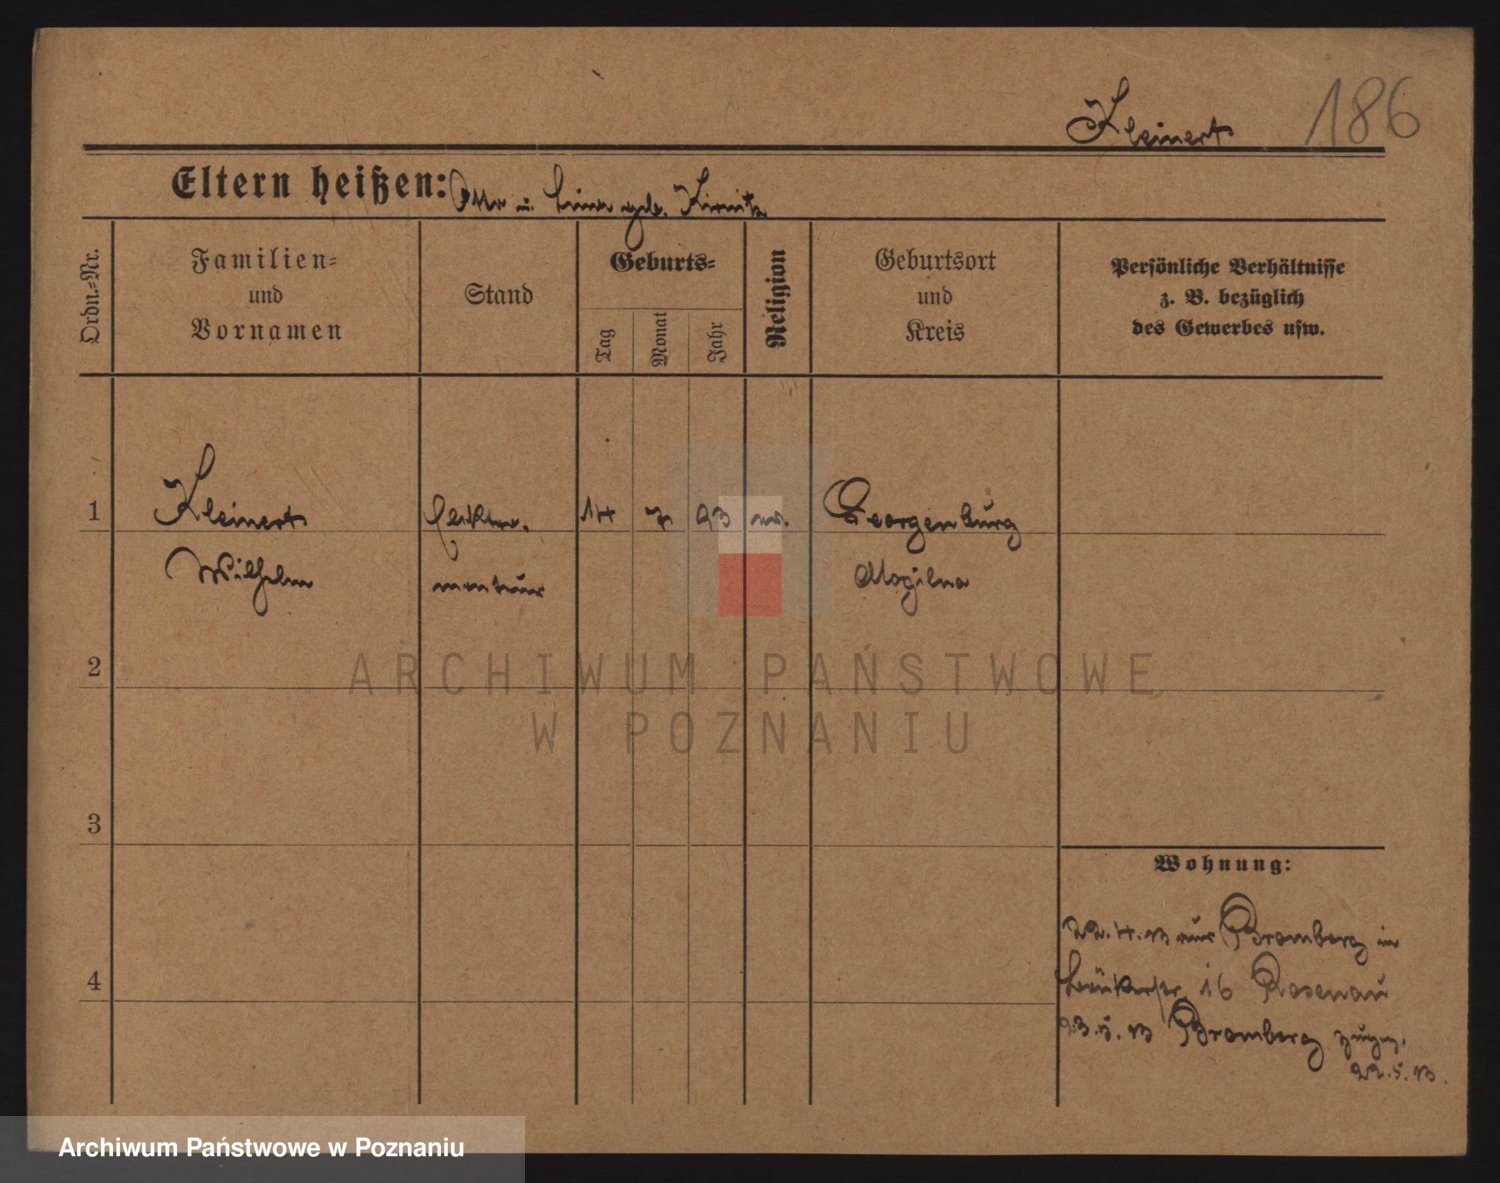 Kleinert 186
Eltern heißen: Otto u. geb.
Ordn.-Nr.
Familien-
und
Vornamen
Stand
Geburts-
Tag
Monat
Jahr
Religion
Geburtsort
und
Kreis
Persönliche Verhältnisse
z. B. bezüglich
des Gewerbes usw.
1 Kleinert 14 7 93 ev. Georgenburg
Wilhelm monteur Mogilno
2
3
4
Wohnung:
22.4.13 aus Bromberg in
16 Rosenau
23.5.13 Bromberg
22.5.13.
ARCHIWUM PAŃSTWOWE
W POZNANIU
Archiwum Państwowe w Poznaniu